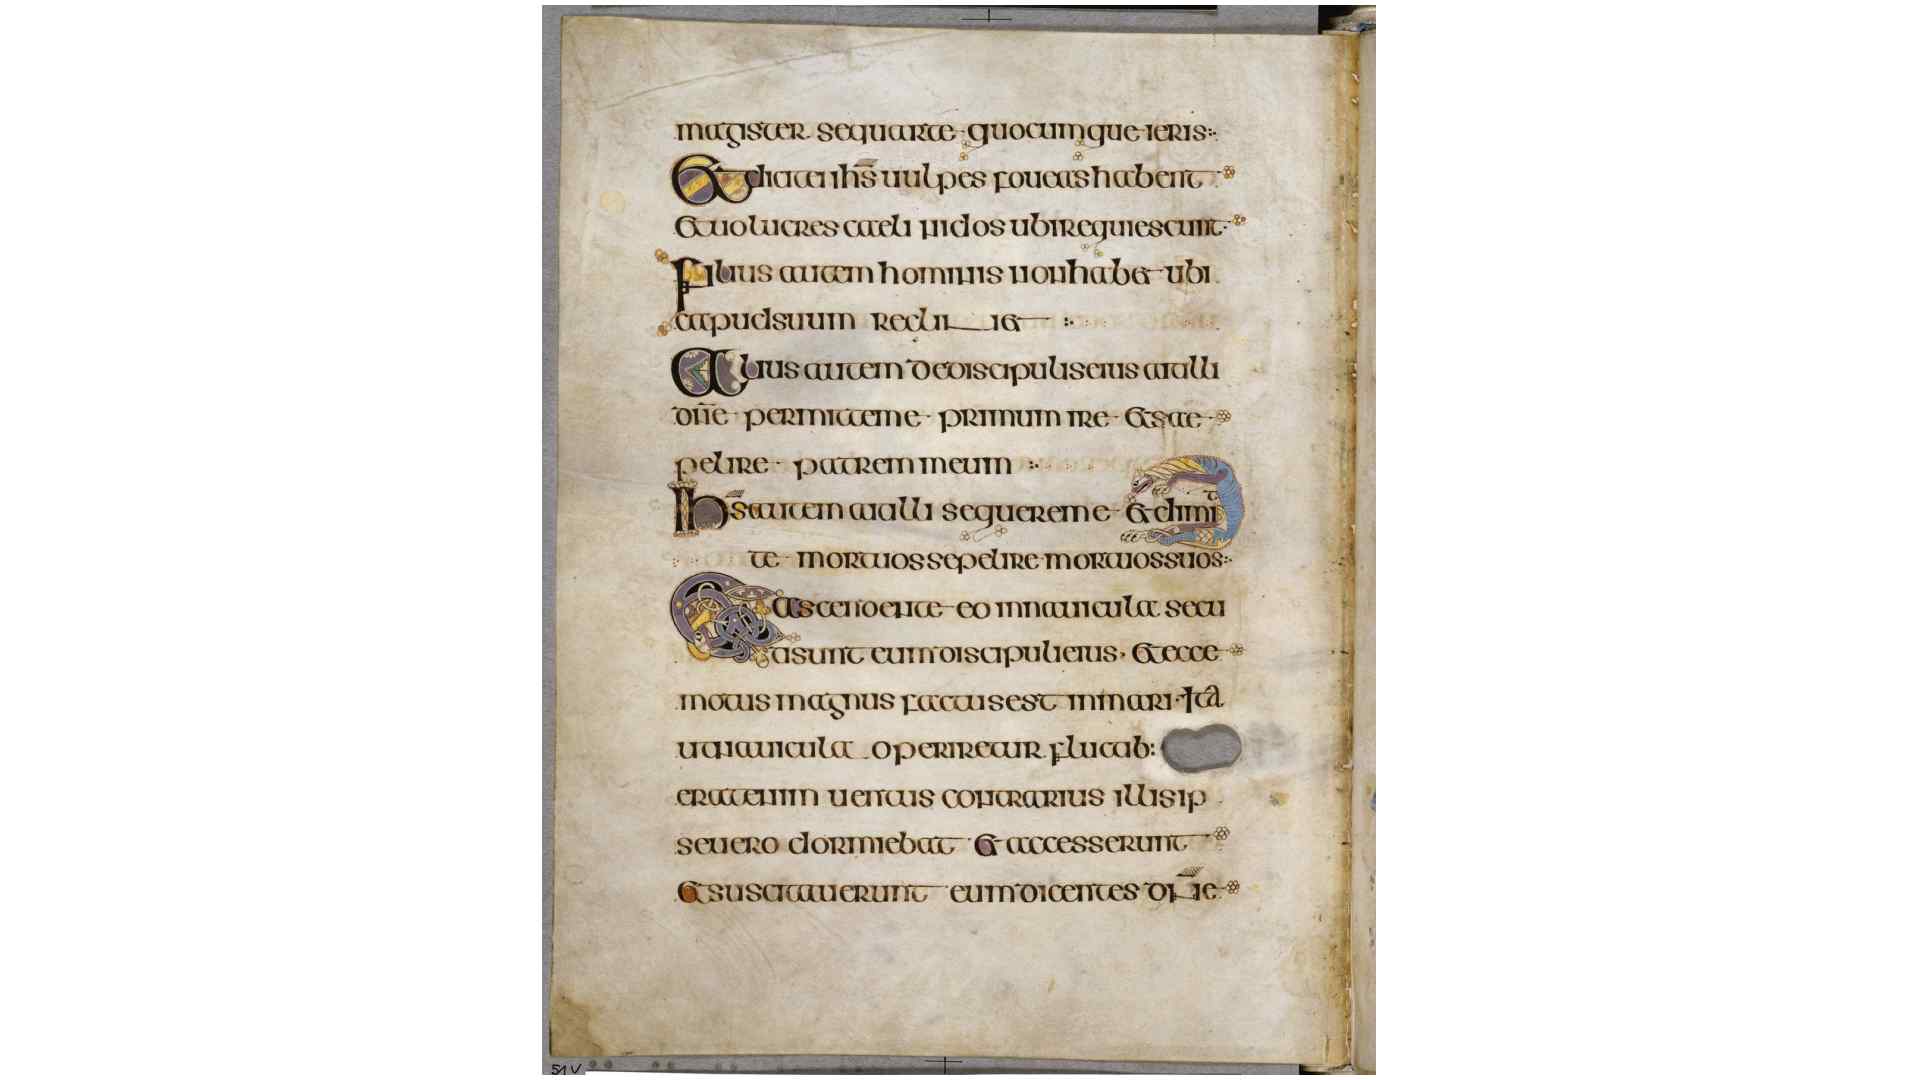 magister sequarte quocumque ieris
Et dicit ei ihs uulpes foueas habent
et uolucres caeli nidos ubi requiescunt
Filius autem hominis non habet ubi
caput suum reclinet
Alius autem de discipulis eius ait illi
dne permitte me primum ire et sae
pelire patrem meum
Ihs autem ait illi sequere me et dimit
te mortuos sepelire mortuos suos
Et ascendente eo in nauicula secu
ti sunt eum discipuli eius et ecce
motus magnus factus est in mari ita
ut nauicula operiretur fluctib:
erat enim uentus contrarius illis ip
se uero dormiebat et accesserunt
et suscitauerunt eum dicentes dne
51v